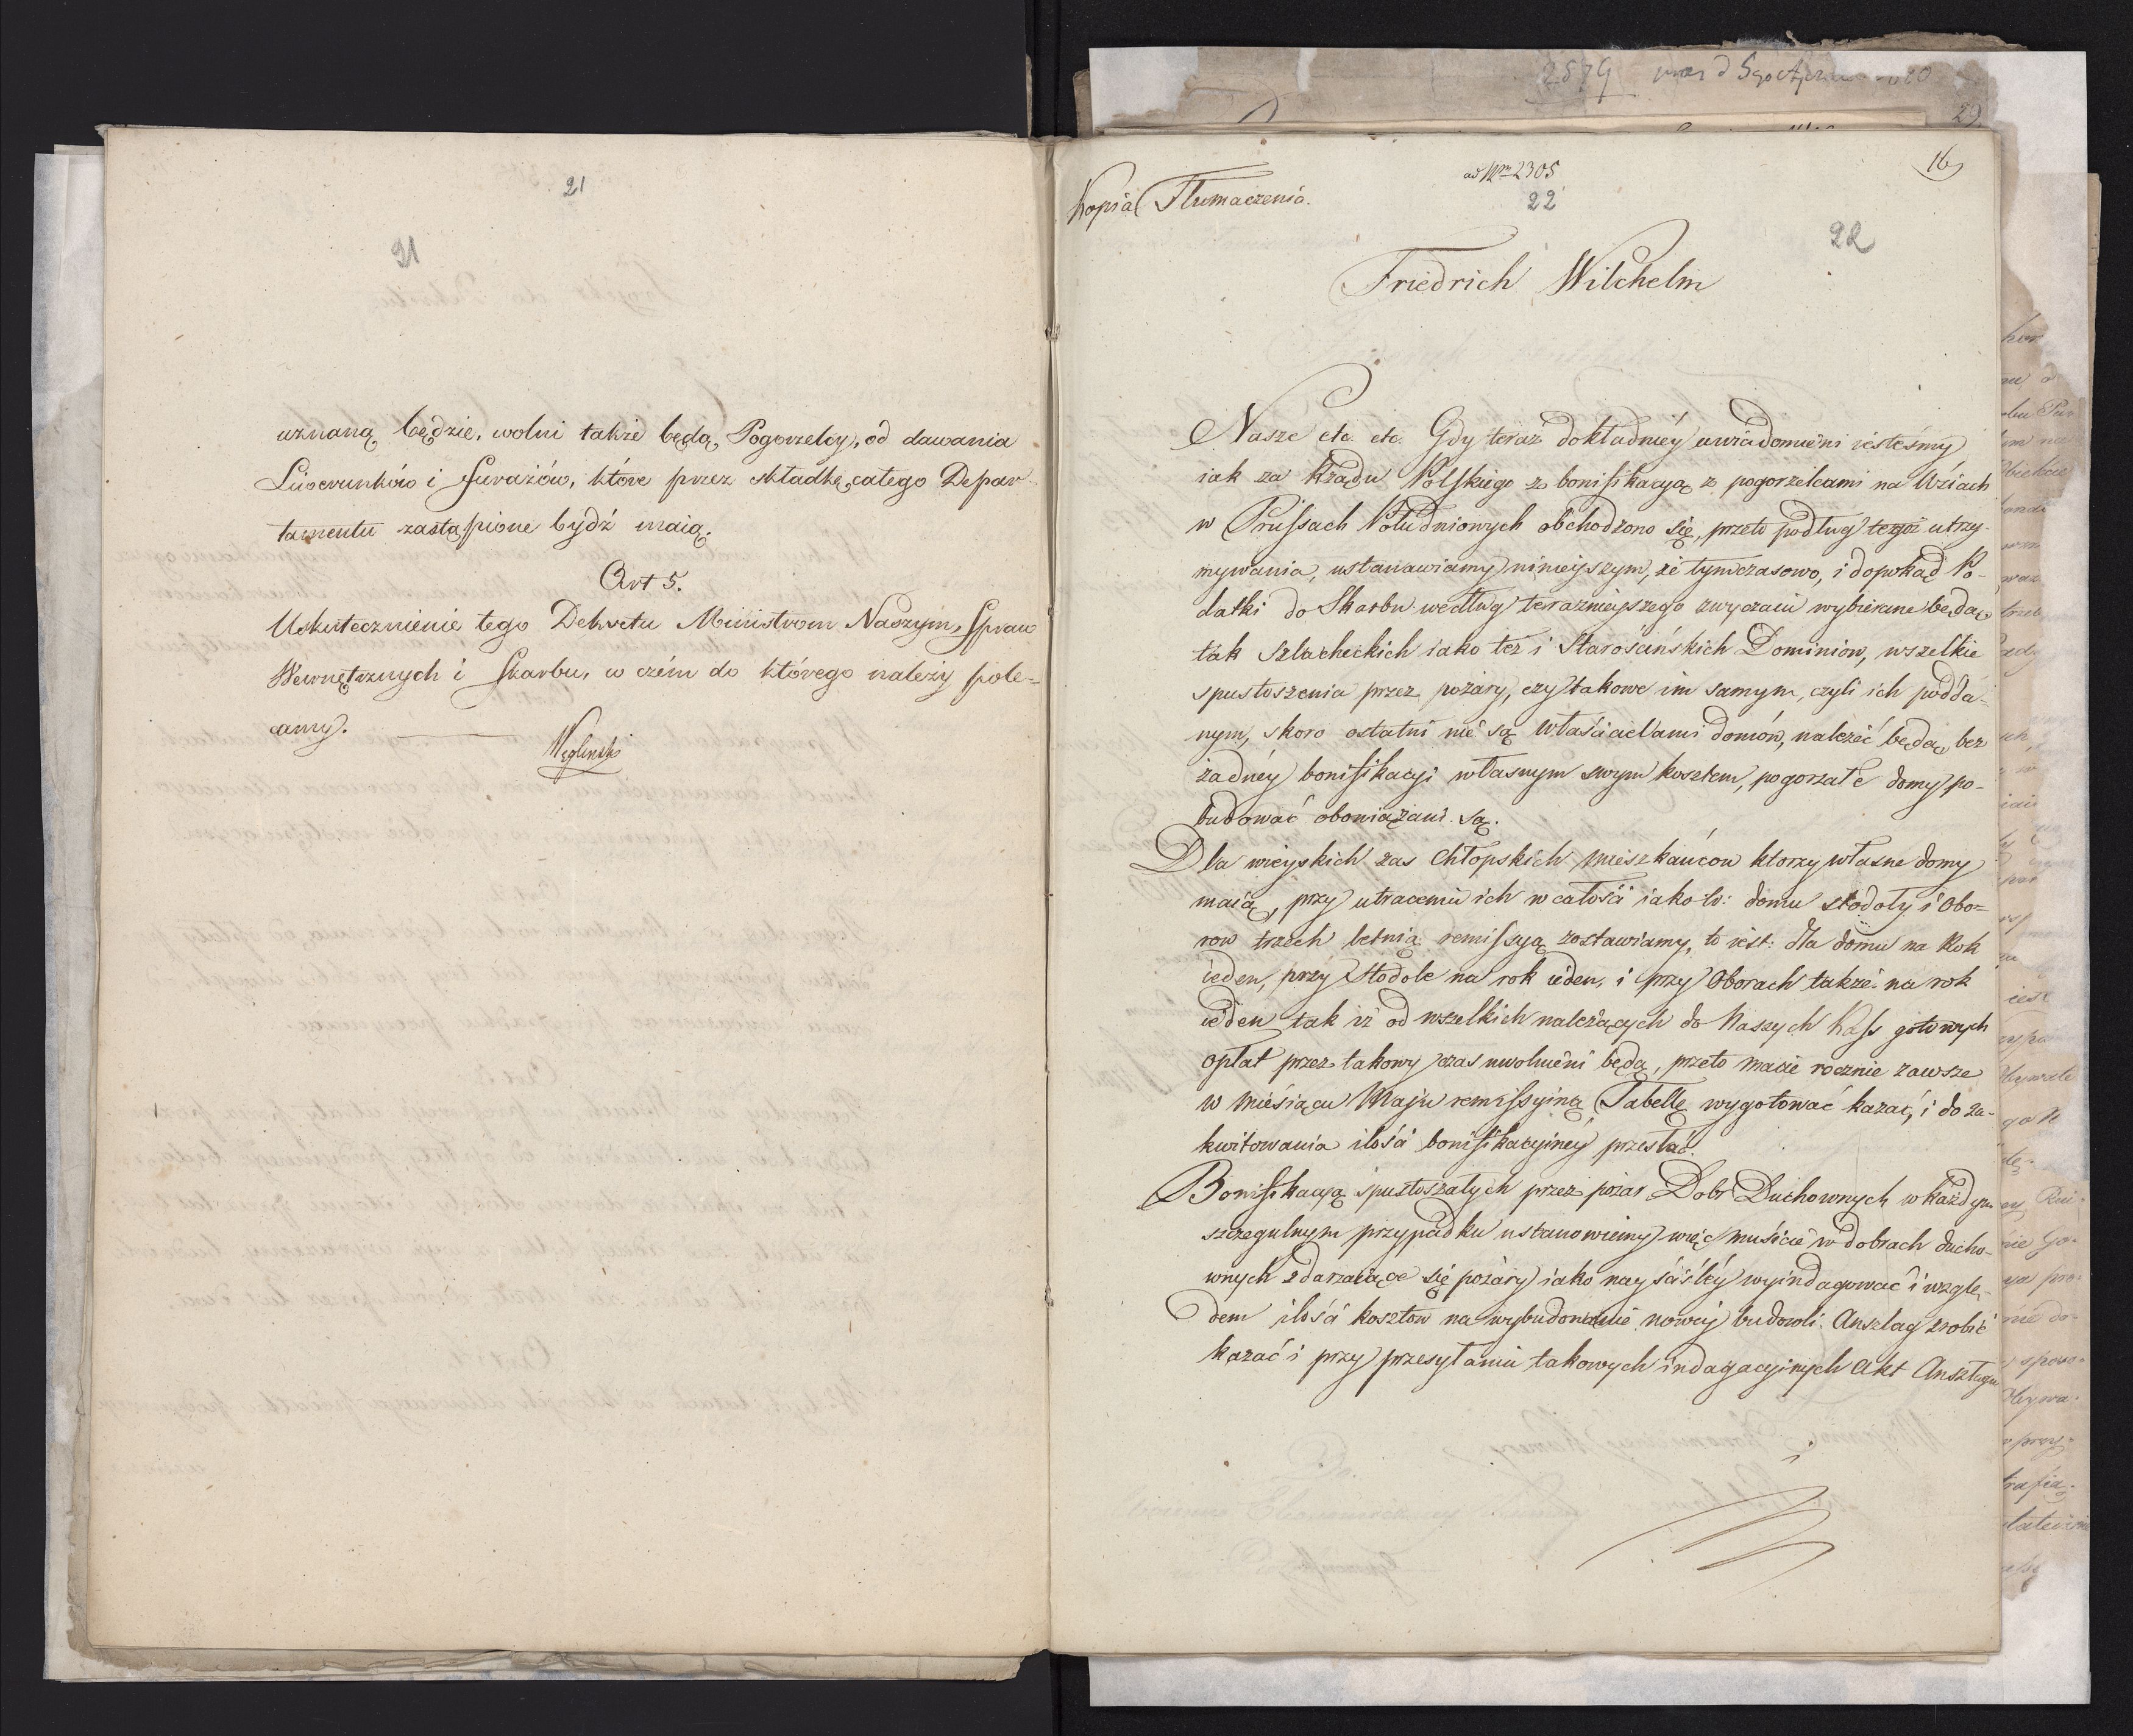 21
21
uznaną będzie, wolni także będą Pogorzelcy, od dawania
Liwerunków i furażów, które przez składkę całego Depar-
tamentu zastąpione bydź maią.
Art 5.
Uskutecznienie tego Dekretu Ministrom Naszym, Spraw
Wewnętrznych i Skarbu, w czém do którego należy pole-
camy.
Węgliński
2579
29
16
ad Nrm 2305
22
22
Kopia Tłumaczenia.
Friedrich Wilchelm
Nasze etc. etc. Gdy teraz dokładniéy uwiadomieni iesteśmy
iak za Rządu Polskiego z bonifikacyą z pogorzelcami na Wsiach
w Prussach Południowych obchodzono się, przeto podług tegoż utrzy-
mywania, ustanawiamy ninieyszym, że tymczasowo, i dopokąd Po-
datki do Skarbu według teraznieyszego zwyczaiu wybierane będą,
tak Szlacheckich iako też i Starościńskich Dominiow, wszelkie
spustoszenia przez pożary, czy takowe im samym, czyli ich podda-
nym, skoro ostatni nie są właścicielami domów, należeć będą, bez
żadnéy bonifikacyi własnym swym kosztem, pogorzałe domy po-
budować obowiązani są.
Dla wieyskich zas Chłopskich mieszkańcow ktorzy własne domy
maią, przy utraceniu ich w całości iako to: domu stodoły i Obo-
row trzech letnią remissyą zostawiamy, to iest: dla domu na Rok
ieden, przy Stodole na rok ieden, i przy Oborach także na rok
ieden tak iż od wszelkich należących do Naszych Kass gotowych
opłat przez takowy czas uwolnieni będą, przeto macie rocznie zawsze
w miesiącu Maju remissyiną Tabellę wygotować kazać, i do za-
kwitowania ilości bonifikacyinéy przesłać.
Bonifikacyą spustoszałych przez pożar Dobr Duchownych w każdym
szczegulnym przypadku ustanowiemy więc musicie w dobrach ducho-
wnych zdarzaiące się pożary iako nay ściśléy wyindagować i wzglę-
dem ilości kosztow na wybudowanie nowéy budowli Anszlag zrobić
kazać i przy przesyłaniu takowych indagacyinych Akt Anszlagu
i